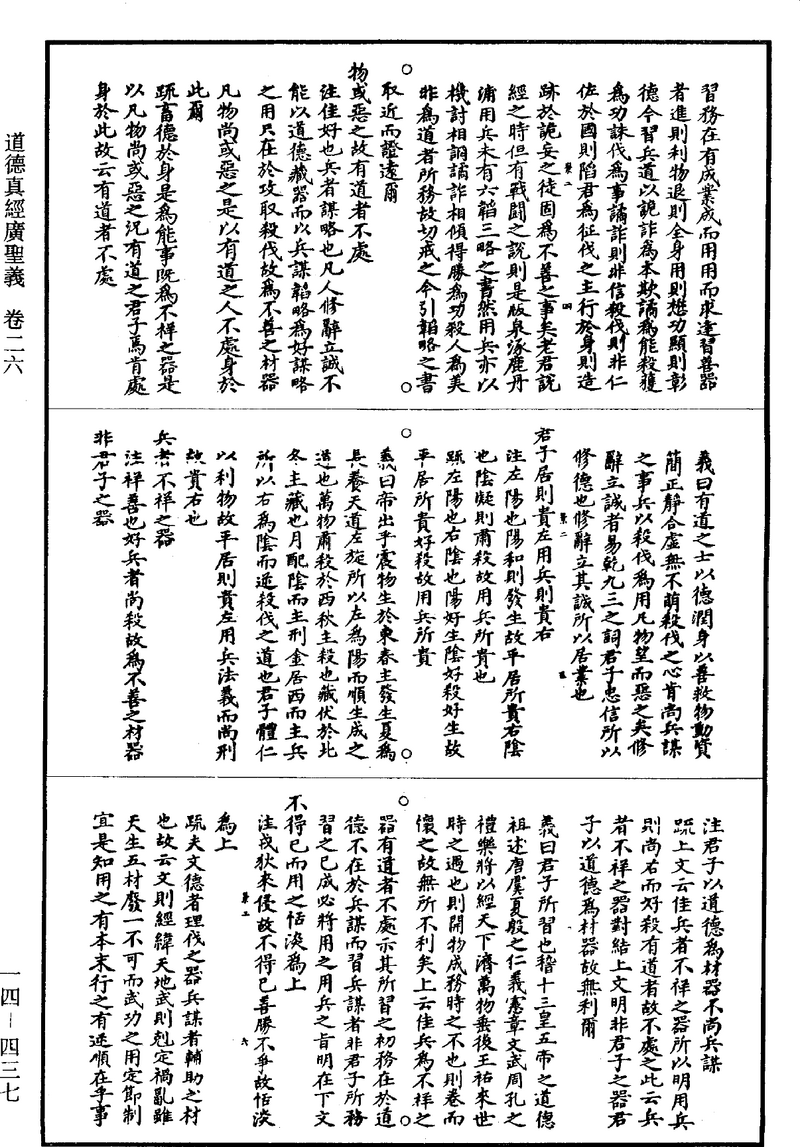 道德真經廣聖義　卷二六
一四－四三七
習務在有成業成而用用而求達習善器
者進則利物退則全身用則懋功顯則彰
德今習兵道以詭詐為本欺譎為能殺獲
為功誅伐為事譎詐則非信殺伐則非仁
佐於國則陷君為征伐之主行於身則造
跡於詭妄之徒固為不善之事矣老君說
經之時但有戰鬪之說則是版泉涿鹿丹
浦用兵未有六韜三略之書然用兵亦以
機討相詷譎詐相傾得勝為功殺人為美
非為道者所務故切戒之今引韜略之書
取近而證遠爾
物或惡之故有道者不處
注佳好也兵者謀略也凡人修辭立誠不
能以道德藏器而以兵謀韜略為好謀略
之用只在於攻取殺伐故為不善之材器
凡物尚或惡之是以有道之人不處身於
此爾
疏畜德於身是為能事既為不祥之器是
以凡物尚或惡之況有道之君子焉肯處
身於此故云有道者不處
義曰有道之士以德潤身以善救物動資
簡正靜合虛無不萌殺伐之心肯尚兵謀
之事兵以殺伐為用凡物望而惡之矣修
辭立誠者易乾九三之詞君子忠信所以
修德也修辭立其誠所以居業也
君子居則貴左用兵則貴右
注左陽也陽和則發生故平居所貴右陰
也陰凝則肅殺故用兵所貴也
疏左陽也右陰也陽好生陰好殺好生故
平居所貴好殺故用兵所貴
義曰帝出乎震物生於東春主發生夏為
長養天道左旋所以左為陽而順生成之
道也萬物肅殺於西秋主殺也藏伏於北
冬主藏也月配陰而主刑金居西而主兵
所以右為陰而逆殺伐之道也君子體仁
以利物故平居則貴左用兵法義而尚刑
故貴右也
兵者不祥之器
注祥善也好兵者尚殺故為不善之材器
非君子之器
注君子以道德為材器不尚兵謀
疏上文云佳兵者不祥之器所以明用兵
則尚右而好殺有道者故不處之此云兵
者不祥之器對結上文明非君子之器君
子以道德為材器故無利爾
義曰君子所習也稽十三皇五帝之道德
祖述唐虞夏殷之仁義憲章文武周孔之
禮樂將以經天下濟萬物垂後王祐來世
時之遇也則開物成務時之不也則卷而
懷之故無所不利矣上云佳兵為不祥之
器有道者不處示其所習之初務在於道
德不在於兵謀而習兵謀者非君子所務
習之已成必將用之用兵之旨明在下文
不得已而用之恬淡為上
注戎狄來侵故不得已善勝不爭故恬淡
為上
疏夫文德者理伐之器兵謀者輔助之材
也故云文則經緯天地武則剋定禍亂雖
天生五材廢一不可而武功之用定節制
宜是知用之有本末行之有逆順在乎事